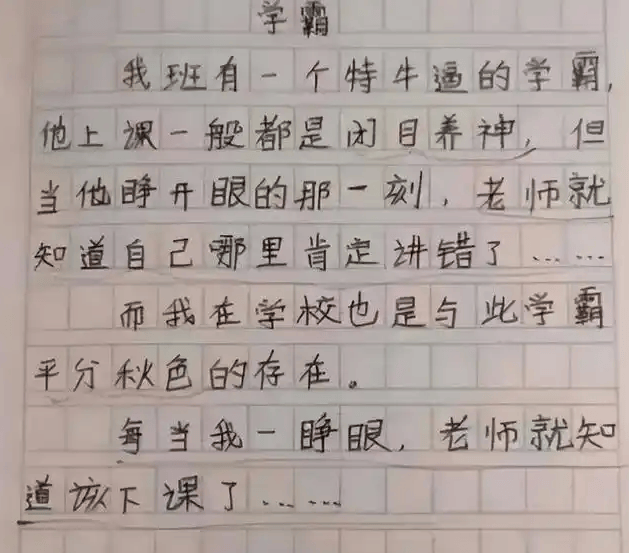 学霸
我班有一个特牛逼的学霸,
他上课一般都是闭目养神,但
当他睁开眼的那一刻,老师就
知道自己哪里肯定讲错了……
而我在学校也是与此学霸
平分秋色的存在。
每当我一睁眼,老师就知
道该下课了……